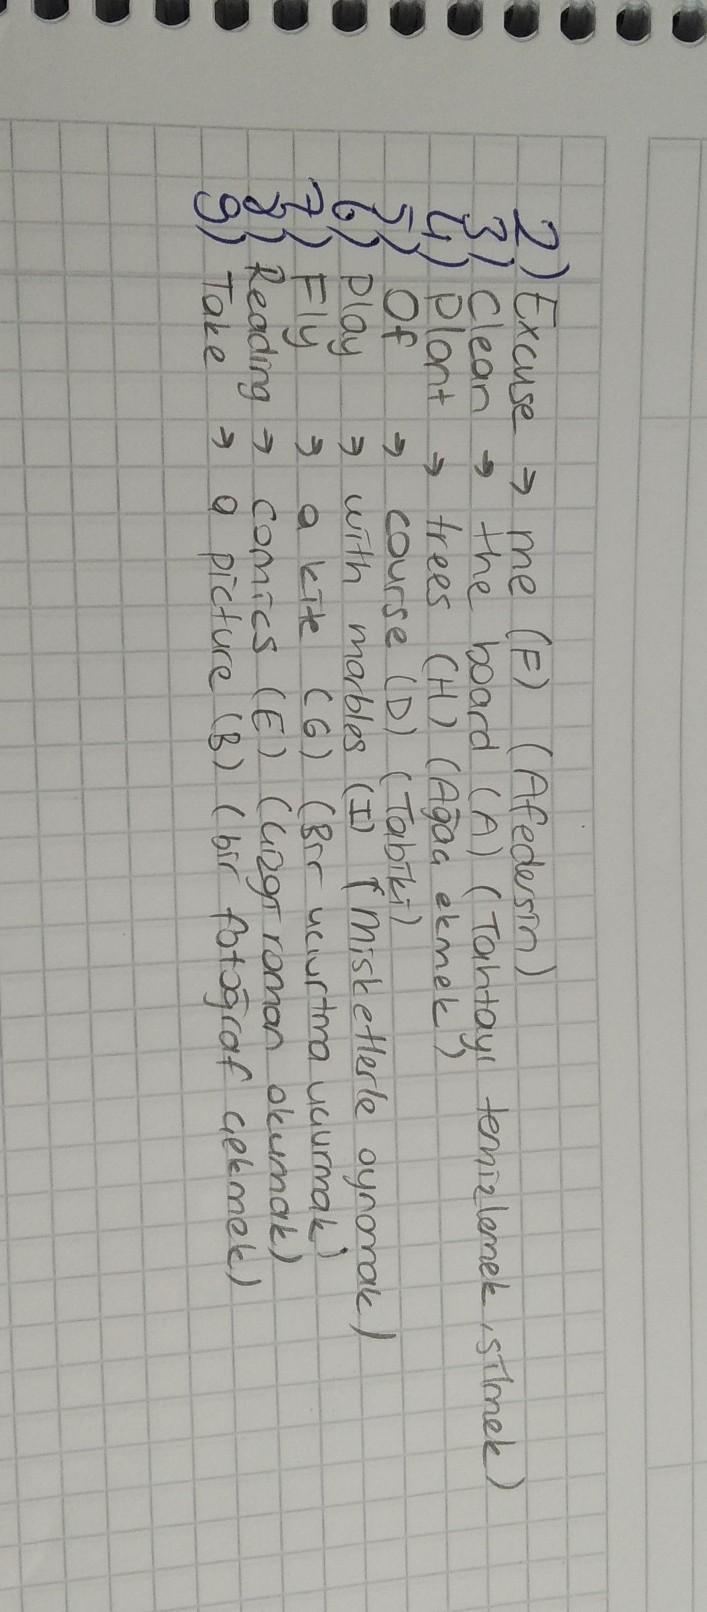 2) Excuse → me (F) (Afedersin)
3) Clean → the board (A) (Tahtayı temizlemek, silmek)
4) Plant → trees (H) (Ağaç ekmek)
5) Of → course (D) (Tabiki)
6) Play → with marbles (I) (Misketlerle oynamak)
7) Fly → a kite (G) (Bir uçurtma uçurmak)
8) Reading → comics (E) (Çizgi roman okumak)
9) Take → a picture (B) (bir fotoğraf çekmek)